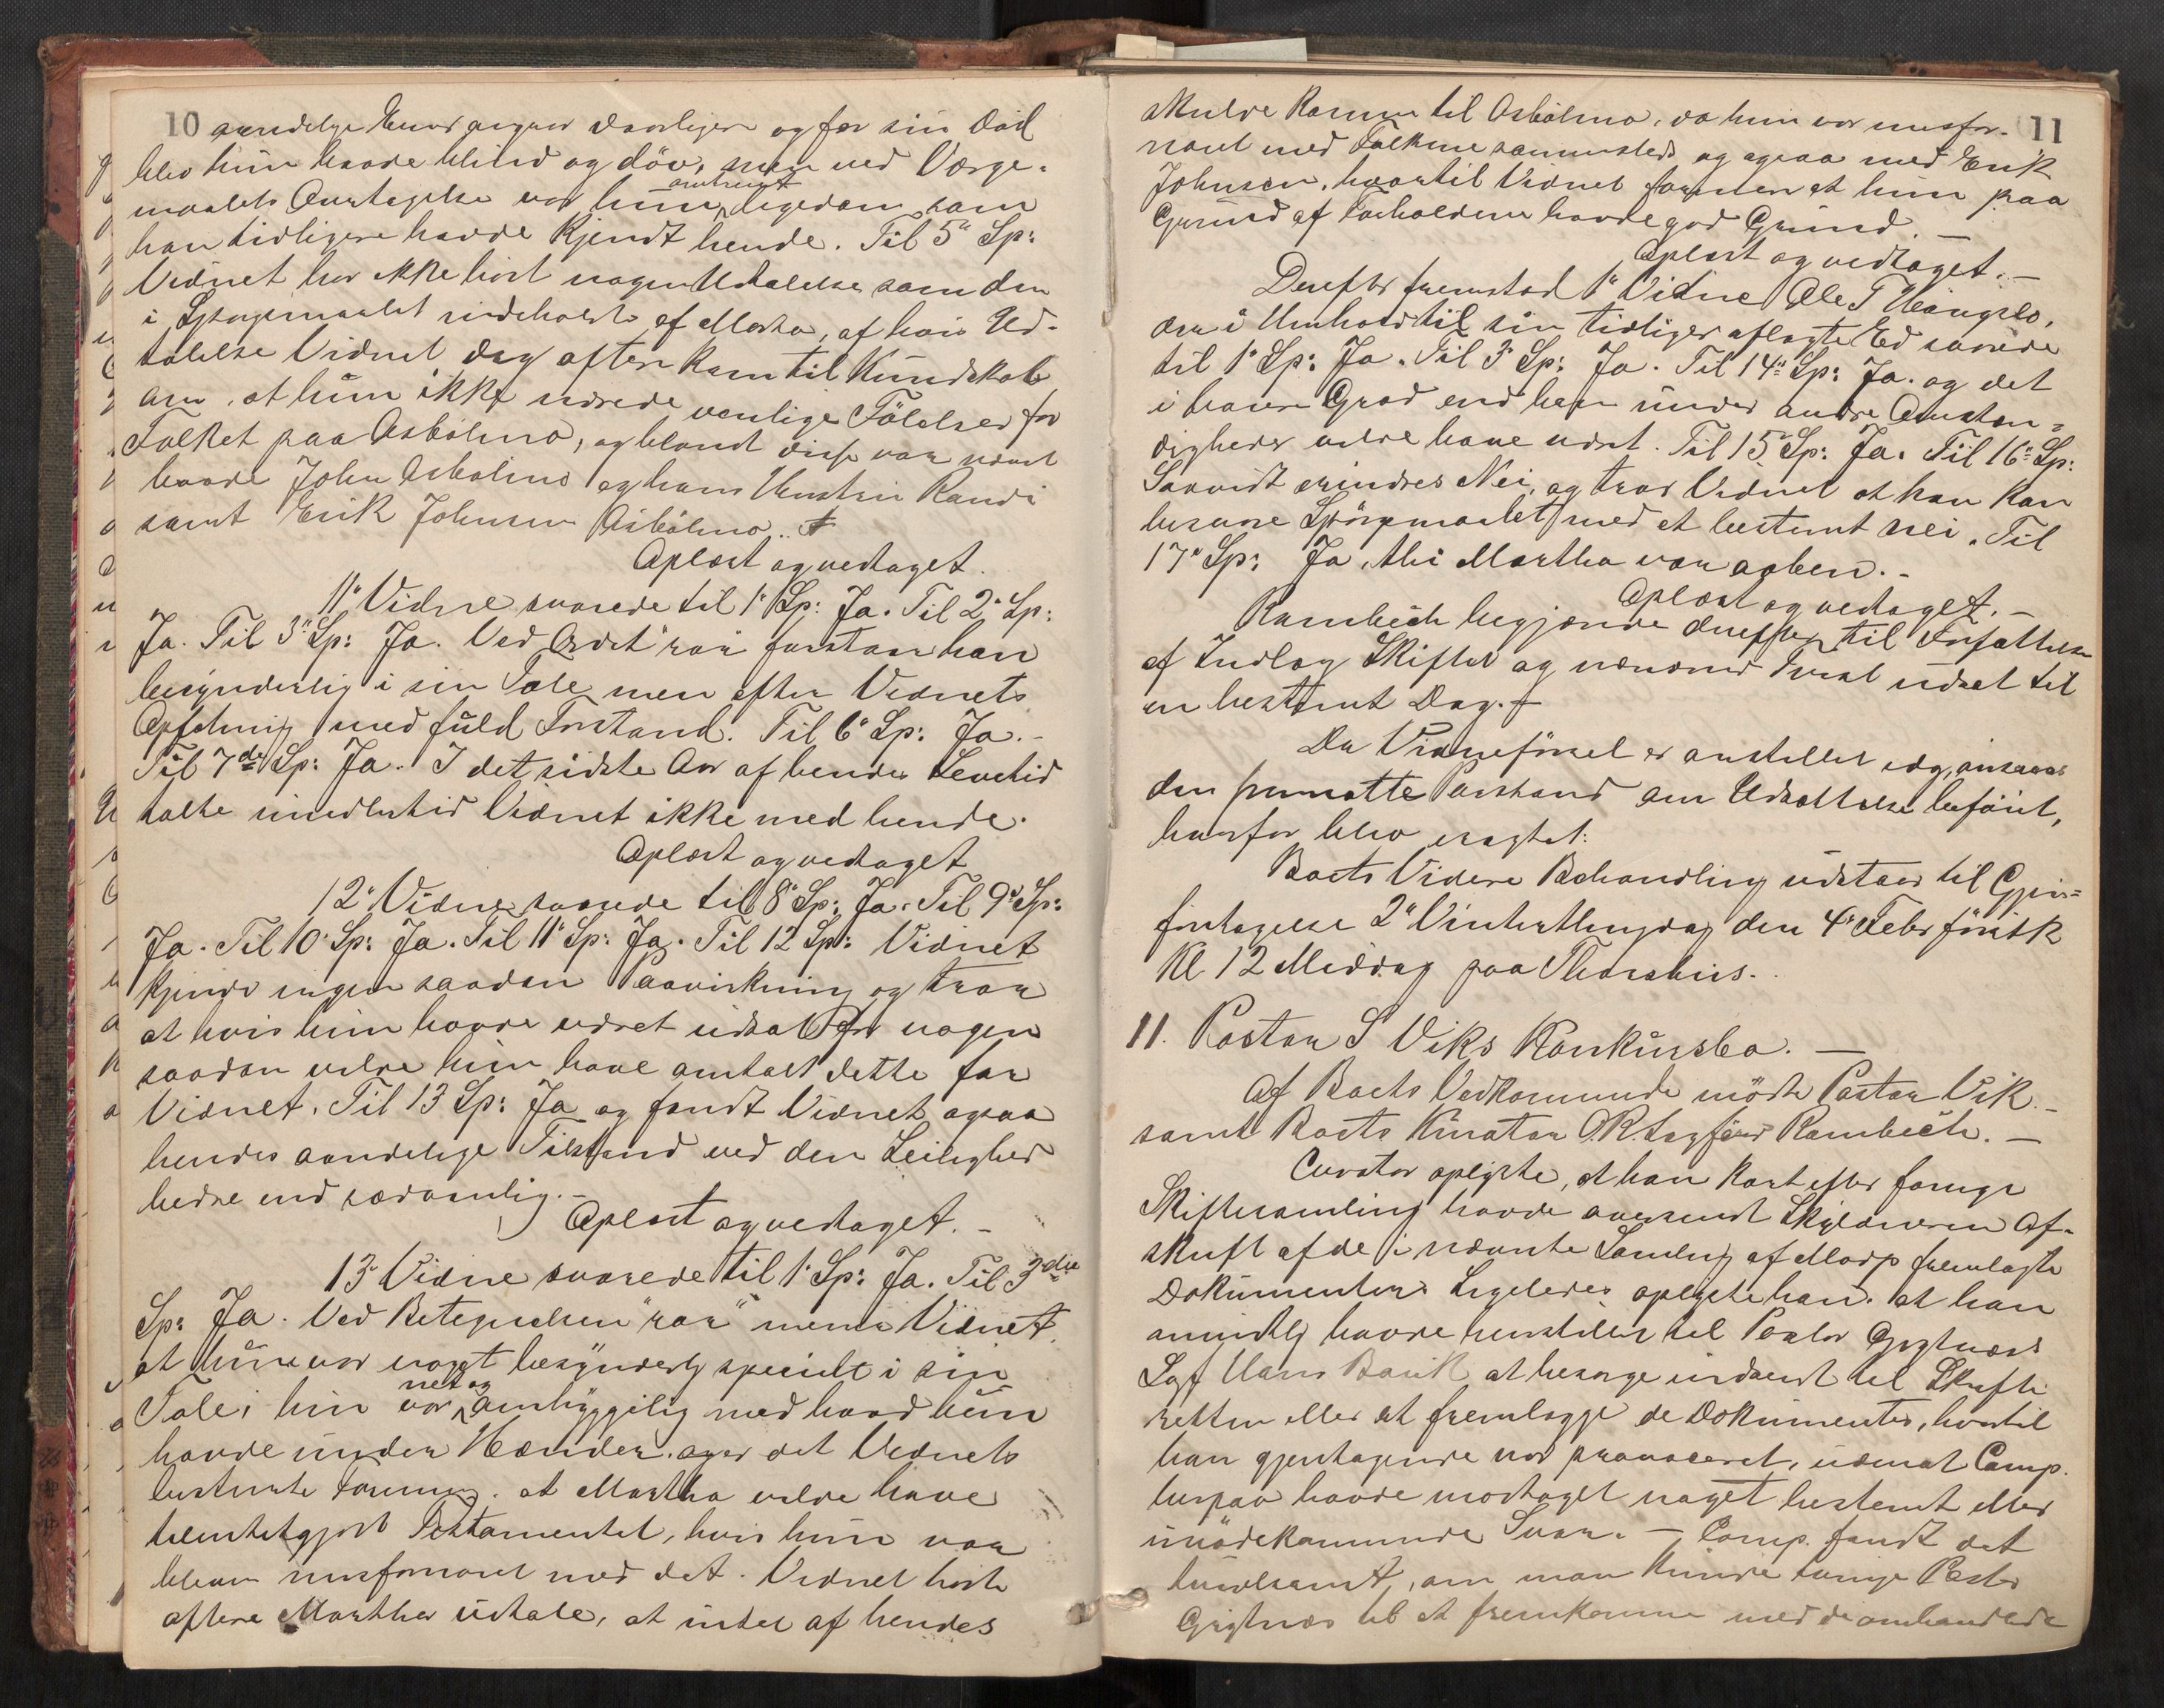 10
aandelige Evner angaar daarligere og før sin Død
blev hun baade blind og døv, men ved Værge-
maalets Antagelse var hun omtrent ligedan som
han tidligere havde kjendt hende. Til 5" Sp:
Vidnet har ikke hørt nogen Udtalelse som den
i Spørgsmaalet indeholdt af Martha, af hvis Ud-
talelse Vidnet dog oftere kom til Kundskab
om, at hun ikke nærede venlige Følelser for
Folket paa Asbølmo, og blandt disse var nævnt
baade John Asbølmo og hans Hustru Randi
samt Erik Johnsen Asbølmo.
Oplæst og vedtaget.
11" Vidne svarede til 1" Sp: Ja. Til 2" Sp:
Ja. Til 3" Sp: Ja. Ved Ordet "rar" forstaar han
besynderlig i sin Tale men efter Vidnets
Opfatning med fuld Forstand. Til 6" Sp: Ja.-
Til 7de Sp: Ja. I det sidste Aar af hendes Levetid
talte imidlertid Vidnet ikke med hende.
Oplæst og vedtaget
12" Vidne svarede til 8" Sp: Ja. Til 9" Sp:
Ja. Til 10" Sp: Ja. Til 11" Sp: Ja. Til 12 Sp: Vidnet
kjender ingen saadan Paavirkning og tror
at hvis hun havde været udsat for nogen
saadan vilde hun have omtalt dette for
Vidnet. Til 13 Sp: Ja og fandt Vidnet ogsaa
hendes aandelige Tilstand ved den Leilighed
bedre end sædvanlig.-
Oplæst og vedtaget.-
13" Vidne svarede til 1" Sp: Ja. Til 3die
Sp: Ja. Ved Betegnelsen "rar" mener Vidnet,
at hun var noget besynderlig specielt i sin
Tale; hun var net og omhyggelig med hvad hun
havde under Hænder. det Vidnets
bestemte Formening, at Martha vilde have
tilintetgjort Testamentet, hvis hun var
bleven misfornøiet med det. Vidnet hørte
oftere Martha udtale, at intet af hendes
11
skulde komme til Asbølmo, da hun var misfor-
nøiet med Folkene sammesteds og ogsaa med Erik
Johnsen, hvortil Vidnet formener at hun paa
Grund af Forholdene havde god Grund.-
Oplæst og vedtaget.-
Derefter fremstod 1" Vidne Ole T Haangslo,
der i Henhold til sin tidligere aflagte Ed svarede
til 1" Sp: Ja. Til 3" Sp: Ja. Til 14" Sp: Ja. og det
i høiere Grad end han under andre Omstæn-
digheder vilde have været. Til 15" Sp: Ja. Til 16" Sp:
Saavidt erindres Nei, og tror Vidnet at han kan
besvare Spørgsmaalet med et bestemt nei. Til
17" Sp: Ja, thi Martha var aaben.-
Oplæst og vedtaget.-
Rambech begjærede derefter til Forfattelse
af Indlæg Skiftet og nærværende udsat til
en bestemt Dag.-
Da Vidneførsel er anstillet idag, ansaaes
den fremsatte Paastand om Udsættelse beføiet,
hvorfor blev eragtet:
Boets Videre Behandling udstaar til Gjen-
foretagelse 2" Vinterthingdag den 4" Febr førstk
Kl 12 Middag paa Thorshus.
11. Pastor S Viks Konkursbo.-
Af Boets Vedkommende mødte Pastor Vik.-
samt Boets Kurator O.R. sagfører Rambech.-
Curator oplyste, at han kort efter forrige
Skiftesamling havde oversendt Skyldneren Af-
skrift af de i nævnte Samling af Morp fremlagte
Dokumenter. Ligeledes oplyste han, at han
havde henstillet til Pastor Grytnæs
Sagf Hans Bauk at besørge indsendt til Skifte-
retten eller at fremlægge de Dokumenter, hvortil
han gjentagende var provoceret, uden at Comp.
herpaa havde modtaget noget bestemt eller
imødekommende Svar.- Comp. fandt det
tvivlsomt, om man kunde tvinge Pastor
Grytnæs til at fremkomme med de omhandlede